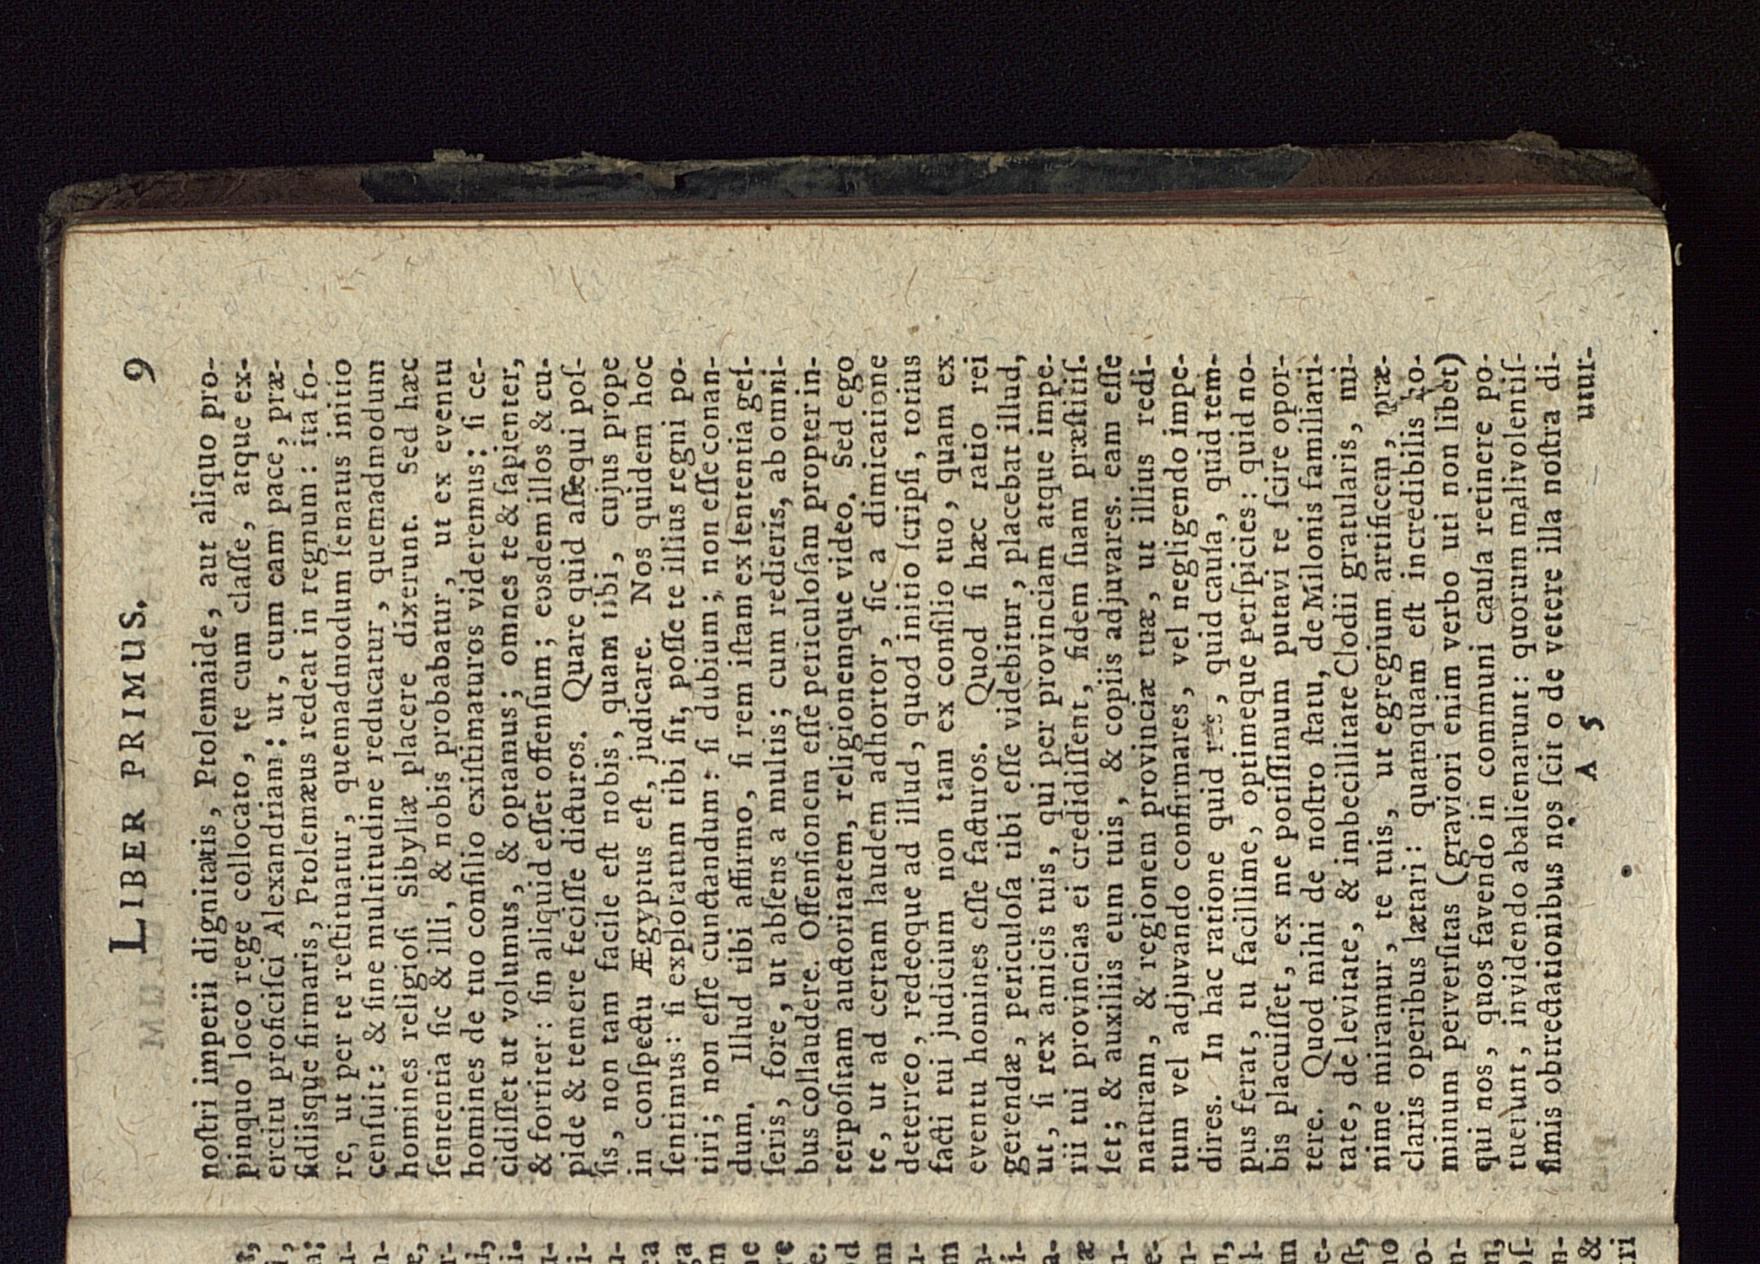 LIBER PRIMUS. 9
noſtri imperii dignitatis, Ptolemaide, aut aliquo pro-
pinquo loco rege collocato, te cum claſſe, atque ex-
ercitu proficiſci Alexandriam: ut, cum eam pace, præ-
ſidiisque firmaris, Ptolemæus redeat in regnum: ita fo-
re, ut per te reſtituatur, quemadmodum ſenatus initio
cenſuit: & ſine multitudine reducatur, quemadmodum
homines religioſi Sibyllæ placere dixerunt. Sed hæc
ſententia ſic & illi, & nobis probabatur, ut ex eventu
homines de tuo conſilio exiſtimaturos videremus: ſi ce-
cidiſſet ut volumus, & optamus; omnes te & ſapienter,
& fortiter: ſin aliquid eſſet offenſum; eosdem illos & cu-
pide & temere feciſſe dicturos. Quare quid aſſequi poſ-
ſis, non tam facile eſt nobis, quam tibi, cujus prope
in conſpectu Ægyptus eſt, judicare. Nos quidem hoc
ſentimus: ſi exploratum tibi ſit, poſſe te illius regni po-
tiri; non eſſe cunctandum: ſi dubium; non eſſe conan-
dum. Illud tibi affirmo, ſi rem iſtam ex ſententia geſ-
ſeris, fore, ut abſens a multis; cum redieris, ab omni-
bus collaudere. Offenſionem eſſe periculoſam propter in-
terpoſitam auctoritatem, religionemque video. Sed ego
te, ut ad certam laudem adhortor, ſic a dimicatione
deterreo, redeoque ad illud, quod initio ſcripſi, totius
facti tui judicium non tam ex conſilio tuo, quam ex
eventu homines eſſe facturos. Quod ſi hæc ratio rei
gerendæ, periculoſa tibi eſſe videbitur, placebat illud,
ut, ſi rex amicis tuis, qui per provinciam atque impe-
rii tui provincias ei credidiſſent, fidem ſuam præſtitiſ-
ſet; & auxiliis eum tuis, & copiis adjuvares. eam eſſe
naturam, & regionem provinciæ tuæ, ut illius redi-
tum vel adjuvando confirmares, vel negligendo impe-
dires. In hac ratione quid res, quid cauſa, quid tem-
pus ferat, tu facillime, optimeque perſpicies: quid no-
bis placuiſſet, ex me potiſſimum putavi te ſcire opor-
tere. Quod mihi de noſtro ſtatu, de Milonis familiari-
tate, de levitate, & imbecillitate Clodii gratularis, mi-
nime miramur, te tuis, ut egregium artificem, præ-
claris operibus lætari: quamquam eſt incredibilis ho-
minum perverſitas (graviori enim verbo uti non libet)
qui nos, quos favendo in communi cauſa retinere po-
tuerunt, invidendo abalienarunt: quorum malivolentiſ-
ſimis obtrectationibus nos ſcito de vetere illa noſtra di-
A 5 utur-